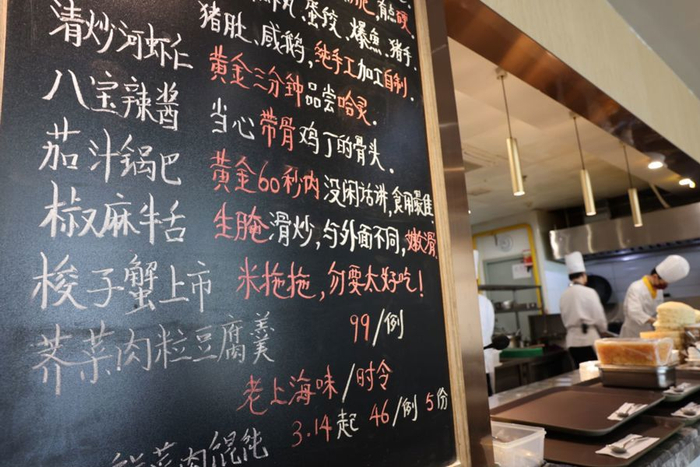 有点硬.
丸,蛋饺、爆魚、猪手.
清炒河虾仁 猪肚、咸鹅,纯手工加工自制.
八宝辣酱 黄金三分钟品尝哈灵.
茄汁锅巴 当心带骨鸡丁的骨头.
椒麻牛舌 黄金60秒内没闲话讲,食用最佳
生腌滑炒,与外面不同,嫩滑
梭子蟹上市 米拖拖,勿要太好吃!
荠菜肉粒豆腐羹 99/例
老上海味/时令
菜肉馄饨 3.14起 46/例 5份